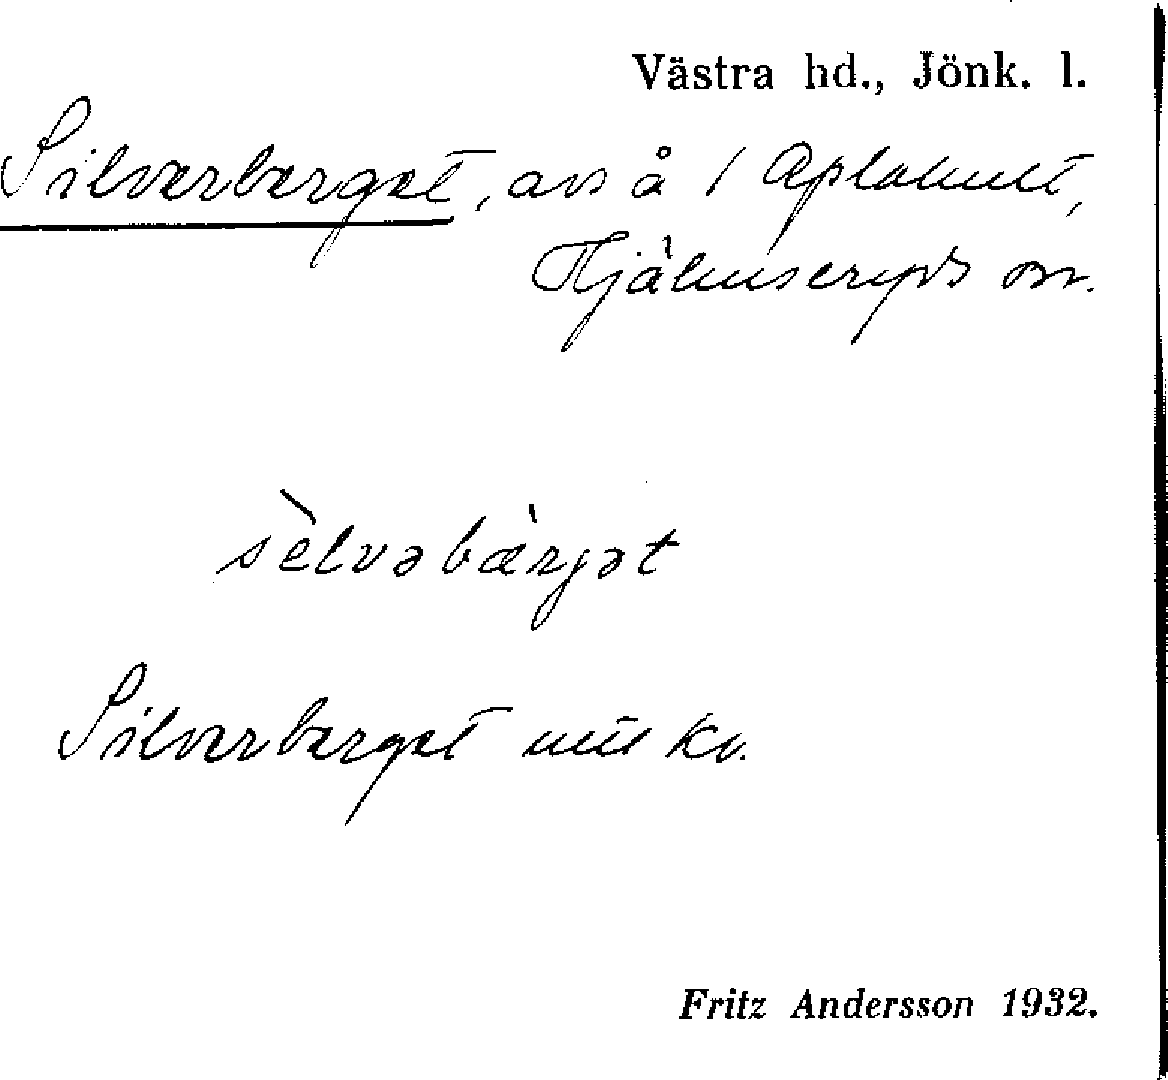 Västra hd., Jönk. l.
Silverberget, avs å / Aplakult,
Hjälmseryds sn.
sèlvəbærjət
Silverberget mtl Kv.
Fritz Andersson 1932.